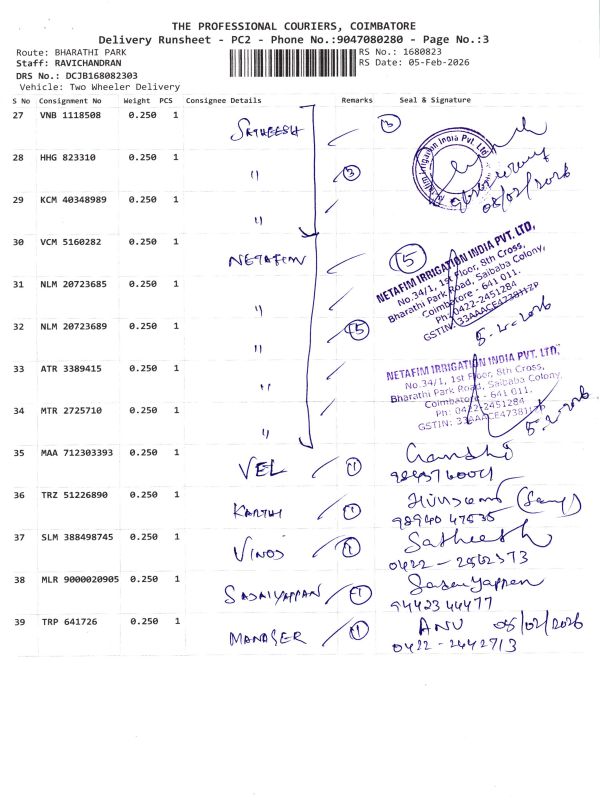 THE PROFESSIONAL COURIERS, COIMBATORE
Delivery Runsheet - PC2 - Phone No.:9047080280 - Page No.:3
Route: BHARATHI PARK
RS No.: 1680823
Staff: RAVICHANDRAN
RS Date: 05-Feb-2026
DRS No.: DCJB168082303
Vehicle: Two Wheeler Delivery
S No Consignment No Weight PCS Consignee Details Remarks Seal & Signature
27 VNB 1118508 0.250 1 SATHEESH 3
28 HHG 823310 0.250 1 " 3
Netafim Irrigation India Pvt. Ltd.
05/02/2026
29 KCM 40348989 0.250 1 "
30 VCM 5160282 0.250 1 NETAFIM 5
NETAFIM IRRIGATION INDIA PVT. LTD,
No.34/1, 1st Floor, 8th Cross,
Bharathi Park Road, Saibaba Colony,
Coimbatore - 641 011.
Ph: 0422-2451284
GSTIN: 33AAACE4738H1ZP
5-2-2026
31 NLM 20723685 0.250 1 "
32 NLM 20723689 0.250 1 " 5
33 ATR 3389415 0.250 1 "
NETAFIM IRRIGATION INDIA PVT. LTD,
No.34/1, 1st Floor, 8th Cross,
Bharathi Park Road, Saibaba Colony,
Coimbatore - 641 011.
Ph: 0422-2451284
GSTIN: 33AAACE4738H1ZP
5-2-2026
34 MTR 2725710 0.250 1 "
35 MAA 712303393 0.250 1 VEL 1
36 TRZ 51226890 0.250 1 KARTHI 1
98940 47535
37 SLM 388498745 0.250 1 VINOD 1 Satheesh
0422-2562573
38 MLR 9000020905 0.250 1 SADAIYAPPAN 1 Sadaiyappan
9442344477
39 TRP 641726 0.250 1 MANAGER 1 ANU 05/02/2026
0422-2442713